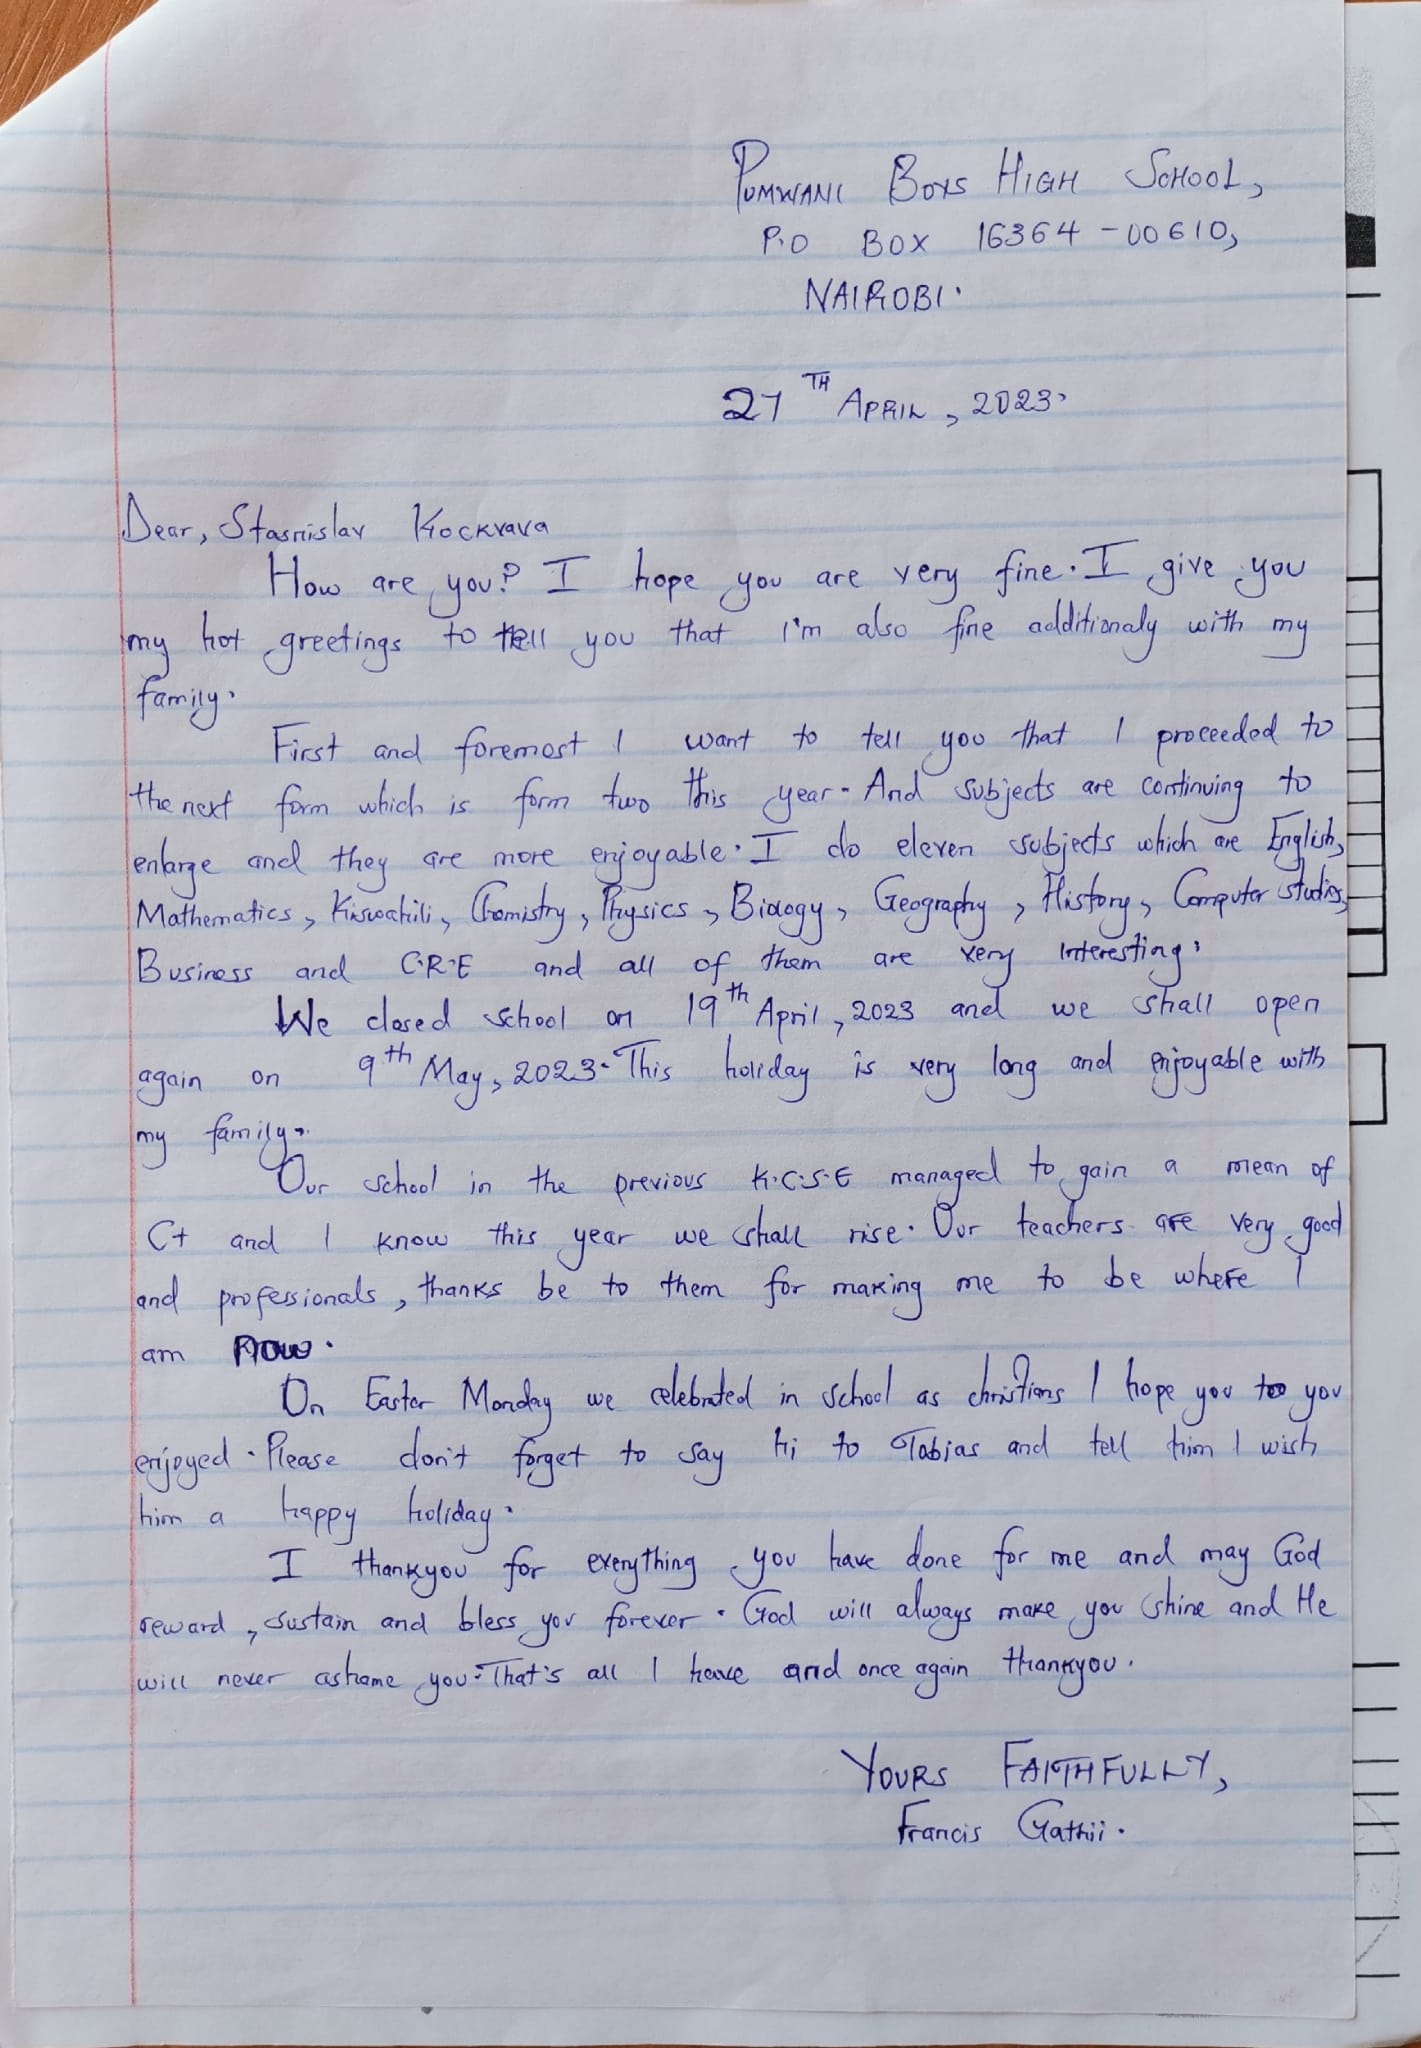 PUMWANI BOYS HIGH SCHOOL,
P.O BOX 16364-00610,
NAIROBI.
27TH APRIL, 2023.
Dear, Stasnislav Kockvava
How are you? I hope you are very fine. I give you
my hot greetings to tell you that I'm also fine additionaly with my
family.
First and foremost I want to tell you that I proceeded to
the next form which is form two this year. And subjects are continuing to
enlarge and they are more enjoyable. I do eleven subjects which are English,
Mathematics, Kiswahili, Chemistry, Physics, Biology, Geography, History, Computer studies,
Business and C.R.E and all of them are very interesting.
We closed school on 19th April, 2023 and we shall open
again on 9th May, 2023. This holiday is very long and enjoyable with
my family.
Our school in the previous K.C.S.E managed to gain a mean of
C+ and I know this year we shall rise. Our teachers are very good
and professionals, thanks be to them for making me to be where I
am now.
On Easter Monday we celebrated in school as christians I hope you too you
enjoyed. Please don't forget to say hi to Tobias and tell him I wish
him a happy holiday.
I thankyou for everything you have done for me and may God
reward, sustain and bless you forever. God will always make you shine and He
will never ashame you. That's all I have and once again thankyou.
YOURS FAITHFULLY,
Francis Gathii.